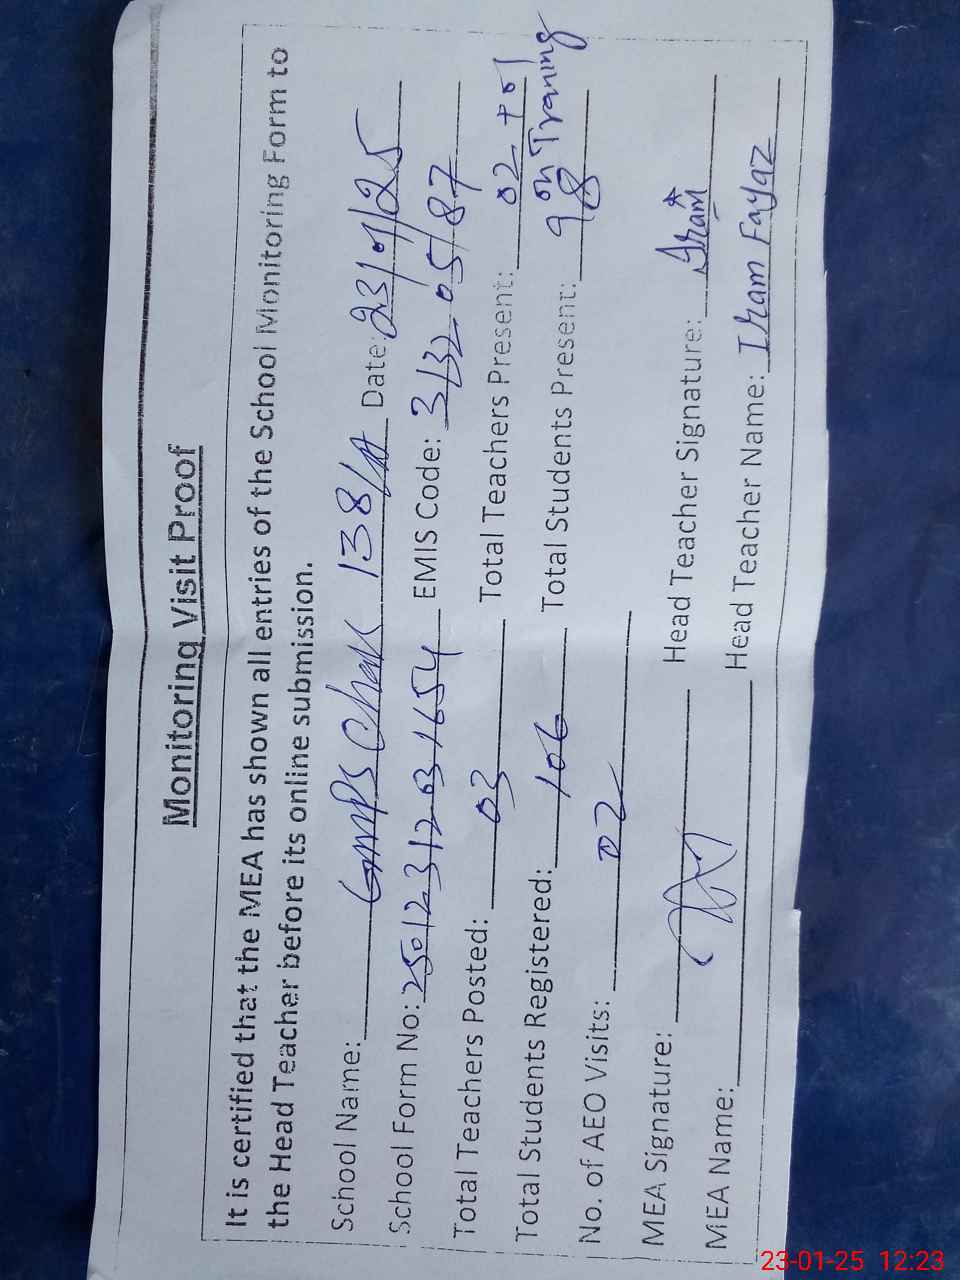 Monitoring Visit Proof
It is certified that the MEA has shown all entries of the School Monitoring Form to
the Head Teacher before its online submission.
School Name: GMPS Chak 138/A Date: 23/01/25
School Form No: 25012312031654 EMIS Code: 313205187
Total Teachers Posted: 03 Total Teachers Present: 02 + 01
on Traning
Total Students Registered: 106 Total Students Present: 98
No. of AEO Visits: 02
MEA Signature: Head Teacher Signature: Iram
MEA Name: Head Teacher Name: Iram Fayaz
23-01-25 12:23